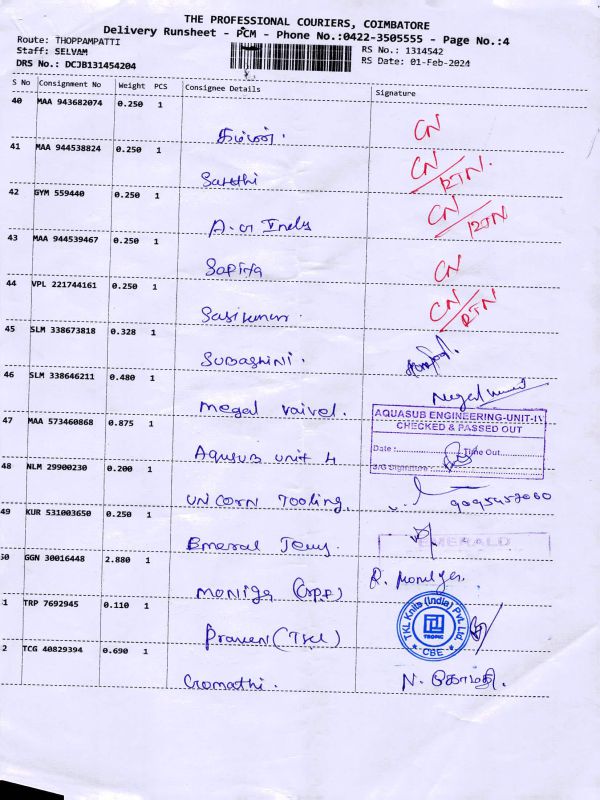 THE PROFESSIONAL COURIERS, COIMBATORE
Delivery Runsheet - PCM - Phone No.:0422-3505555 - Page No.:4
Route: THOPPAMPATTI
Staff: SELVAM
RS No.: 1314542
DRS No.: DCJB131454204
RS Date: 01-Feb-2024
S No Consignment No Weight PCS Consignee Details Signature
40 MAA 943682074 0.250 1
CN
41 MAA 944538824 0.250 1
Sarethi CN/RTN.
42 GYM 559440 0.250 1
CN/RTN
43 MAA 944539467 0.250 1
CN
44 VPL 221744161 0.250 1
Sasikumar. CN/RTN
45 SLM 338673818 0.328 1
SUBASHINI.
46 SLM 338646211 0.480 1
megal vaivel.
47 MAA 573460868 0.875 1
AQUASUB ENGINEERING-UNIT-IV
CHECKED & PASSED OUT
Date : Time Out
S/G Signature :
Aqusub unit 4
48 NLM 29900230 0.200 1
UNICORN Tooling.
49 KUR 531003650 0.250 1
EMERALD
Emeral Jews.
50 GGN 30016448 2.880 1
moniga
1 TRP 7692945 0.110 1
TKL Knits (India) Pvt. Ltd.
TROPIC
CBE
Praveen (TKL)
2 TCG 40829394 0.690 1
Gomathi. N. கோமதி.